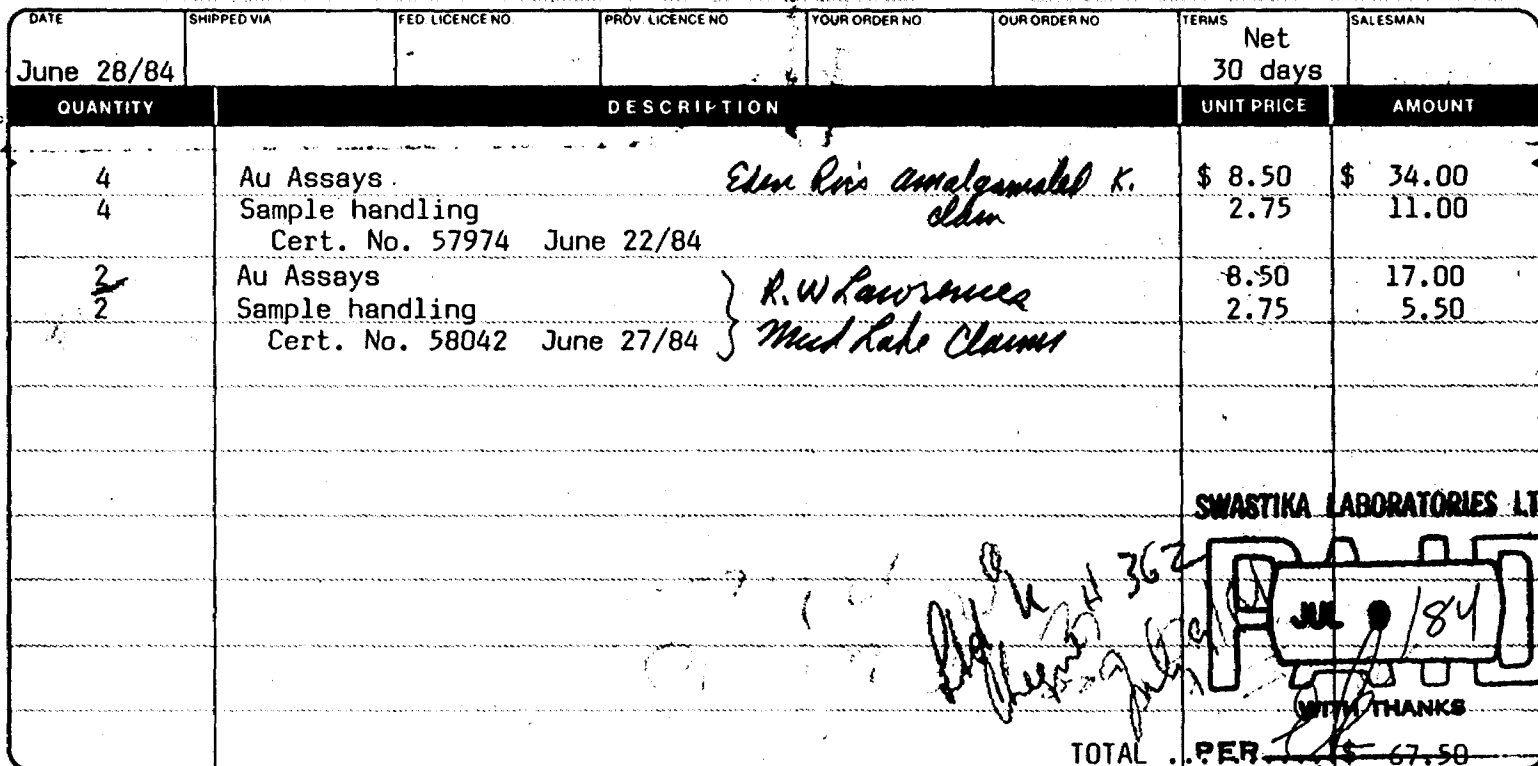 DATE SHIPPED VIA FED. LICENCE NO. PROV. LICENCE NO YOUR ORDER NO. OUR ORDER NO TERMS SALESMAN
June 28/84 Net
30 days
QUANTITY DESCRIPTION UNIT PRICE AMOUNT
4 Au Assays amalgamated K. $ 8.50 $ 34.00
4 Sample handling claim 2.75 11.00
Cert. No. 57974 June 22/84
2 Au Assays R.W Lawrence 8.50 17.00
2 Sample handling 2.75 5.50
Cert. No. 58042 June 27/84 Mud Lake Claims
SWASTIKA LABORATORIES LT
362
JUL /84
WITH THANKS
TOTAL ..PER $ 67.50